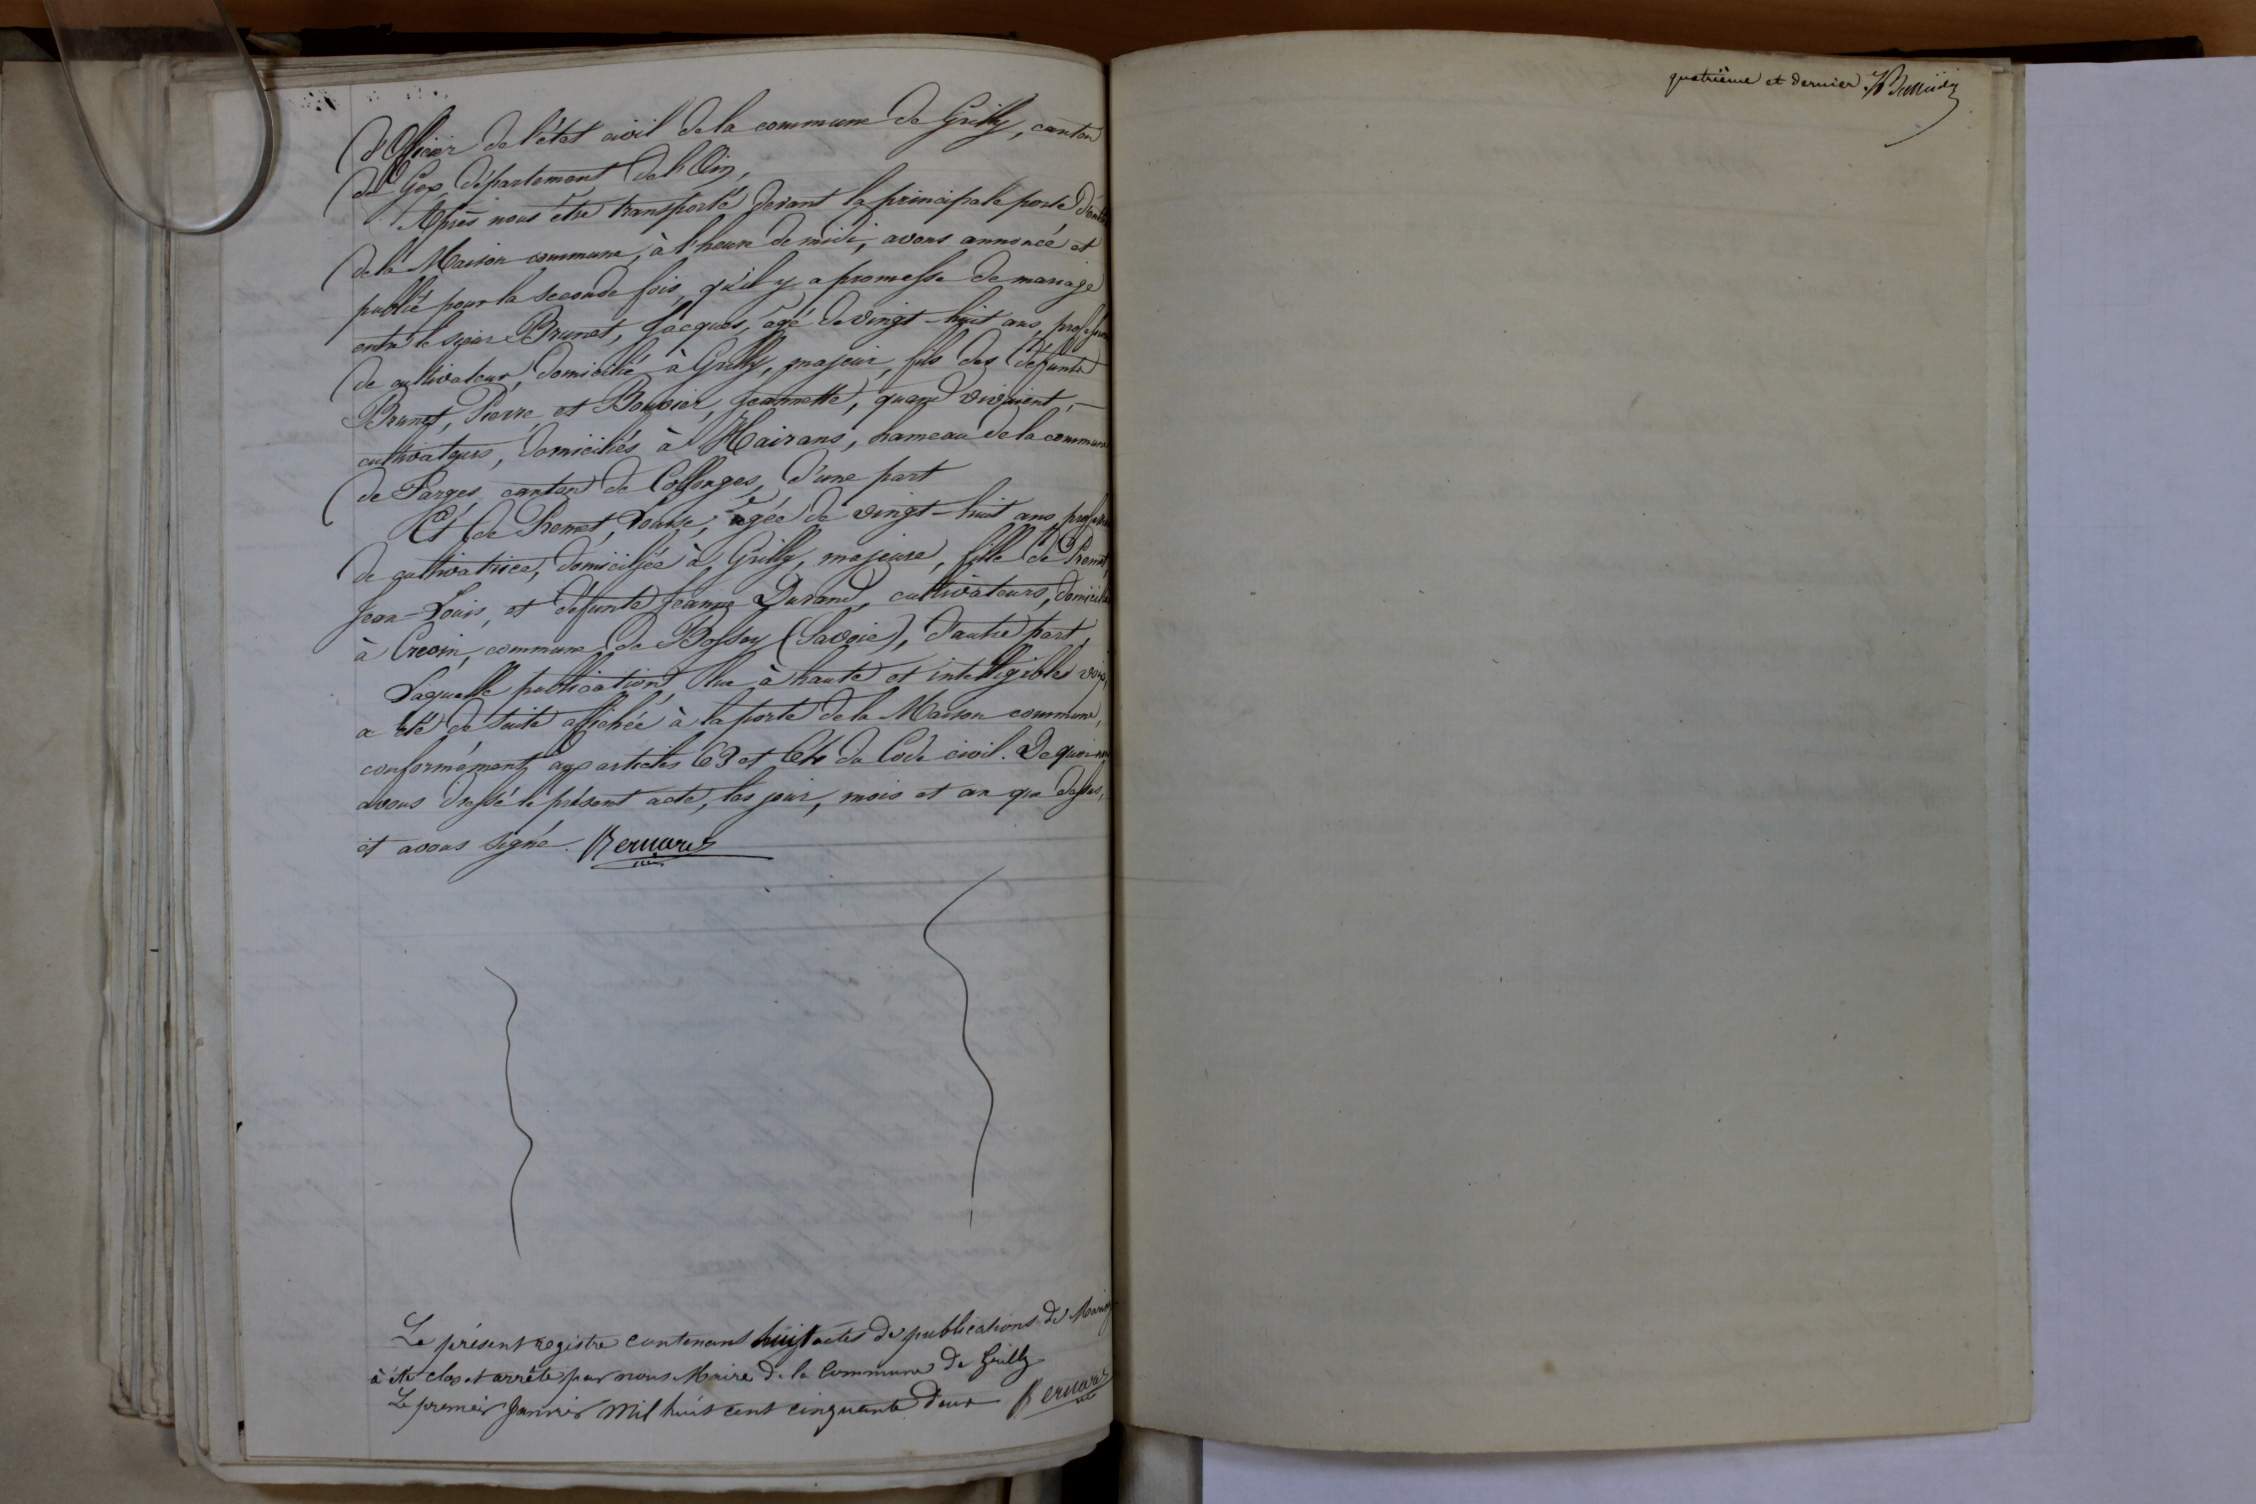 d'Officier de l'état civil de la commune de Grilly, canton
de Gex, département de l'Ain,
Après nous être transporté devant la principale porte d'entrée
de la Maison commune, à l'heure de midi, avons annoncé et
publié pour la seconde fois, qu'il y a promesse de mariage
entre le sieur Brunet, Jacques, âgé de vingt-huit ans, profession
de cultivateur, domicilié à Grilly, majeur, fils des défunts
Brunet, Pierre, et Bouvier, Jeannette, quand vivaient,
cultivateurs, domiciliés à Hairans, hameau de la commune
de Farges, canton de Collonges, d'une part
Et de Premat, Louise, âgée de vingt-huit ans, profession
de cultivatrice, domiciliée à Grilly, majeure, fille de Premat,
Jean-Louis, et défunte Jeanne Durand, cultivateurs, domiciliés
à Crevin, commune de Bossey (Savoie), d'autre part,
Laquelle publication, lue à haute et intelligible voix,
a été de suite affichée à la porte de la Maison commune,
conformément aux articles 63 et 64 du Code civil. De quoi nous
avons dressé le présent acte, les jour, mois et an que dessus,
et avons signé.
Le présent registre contenant huit actes de publications de Mariage
à été clos et arrêté par nous Maire de la Commune de Grilly
Le premier Janvier mil huit cent cinquante deux
quatrième et dernier